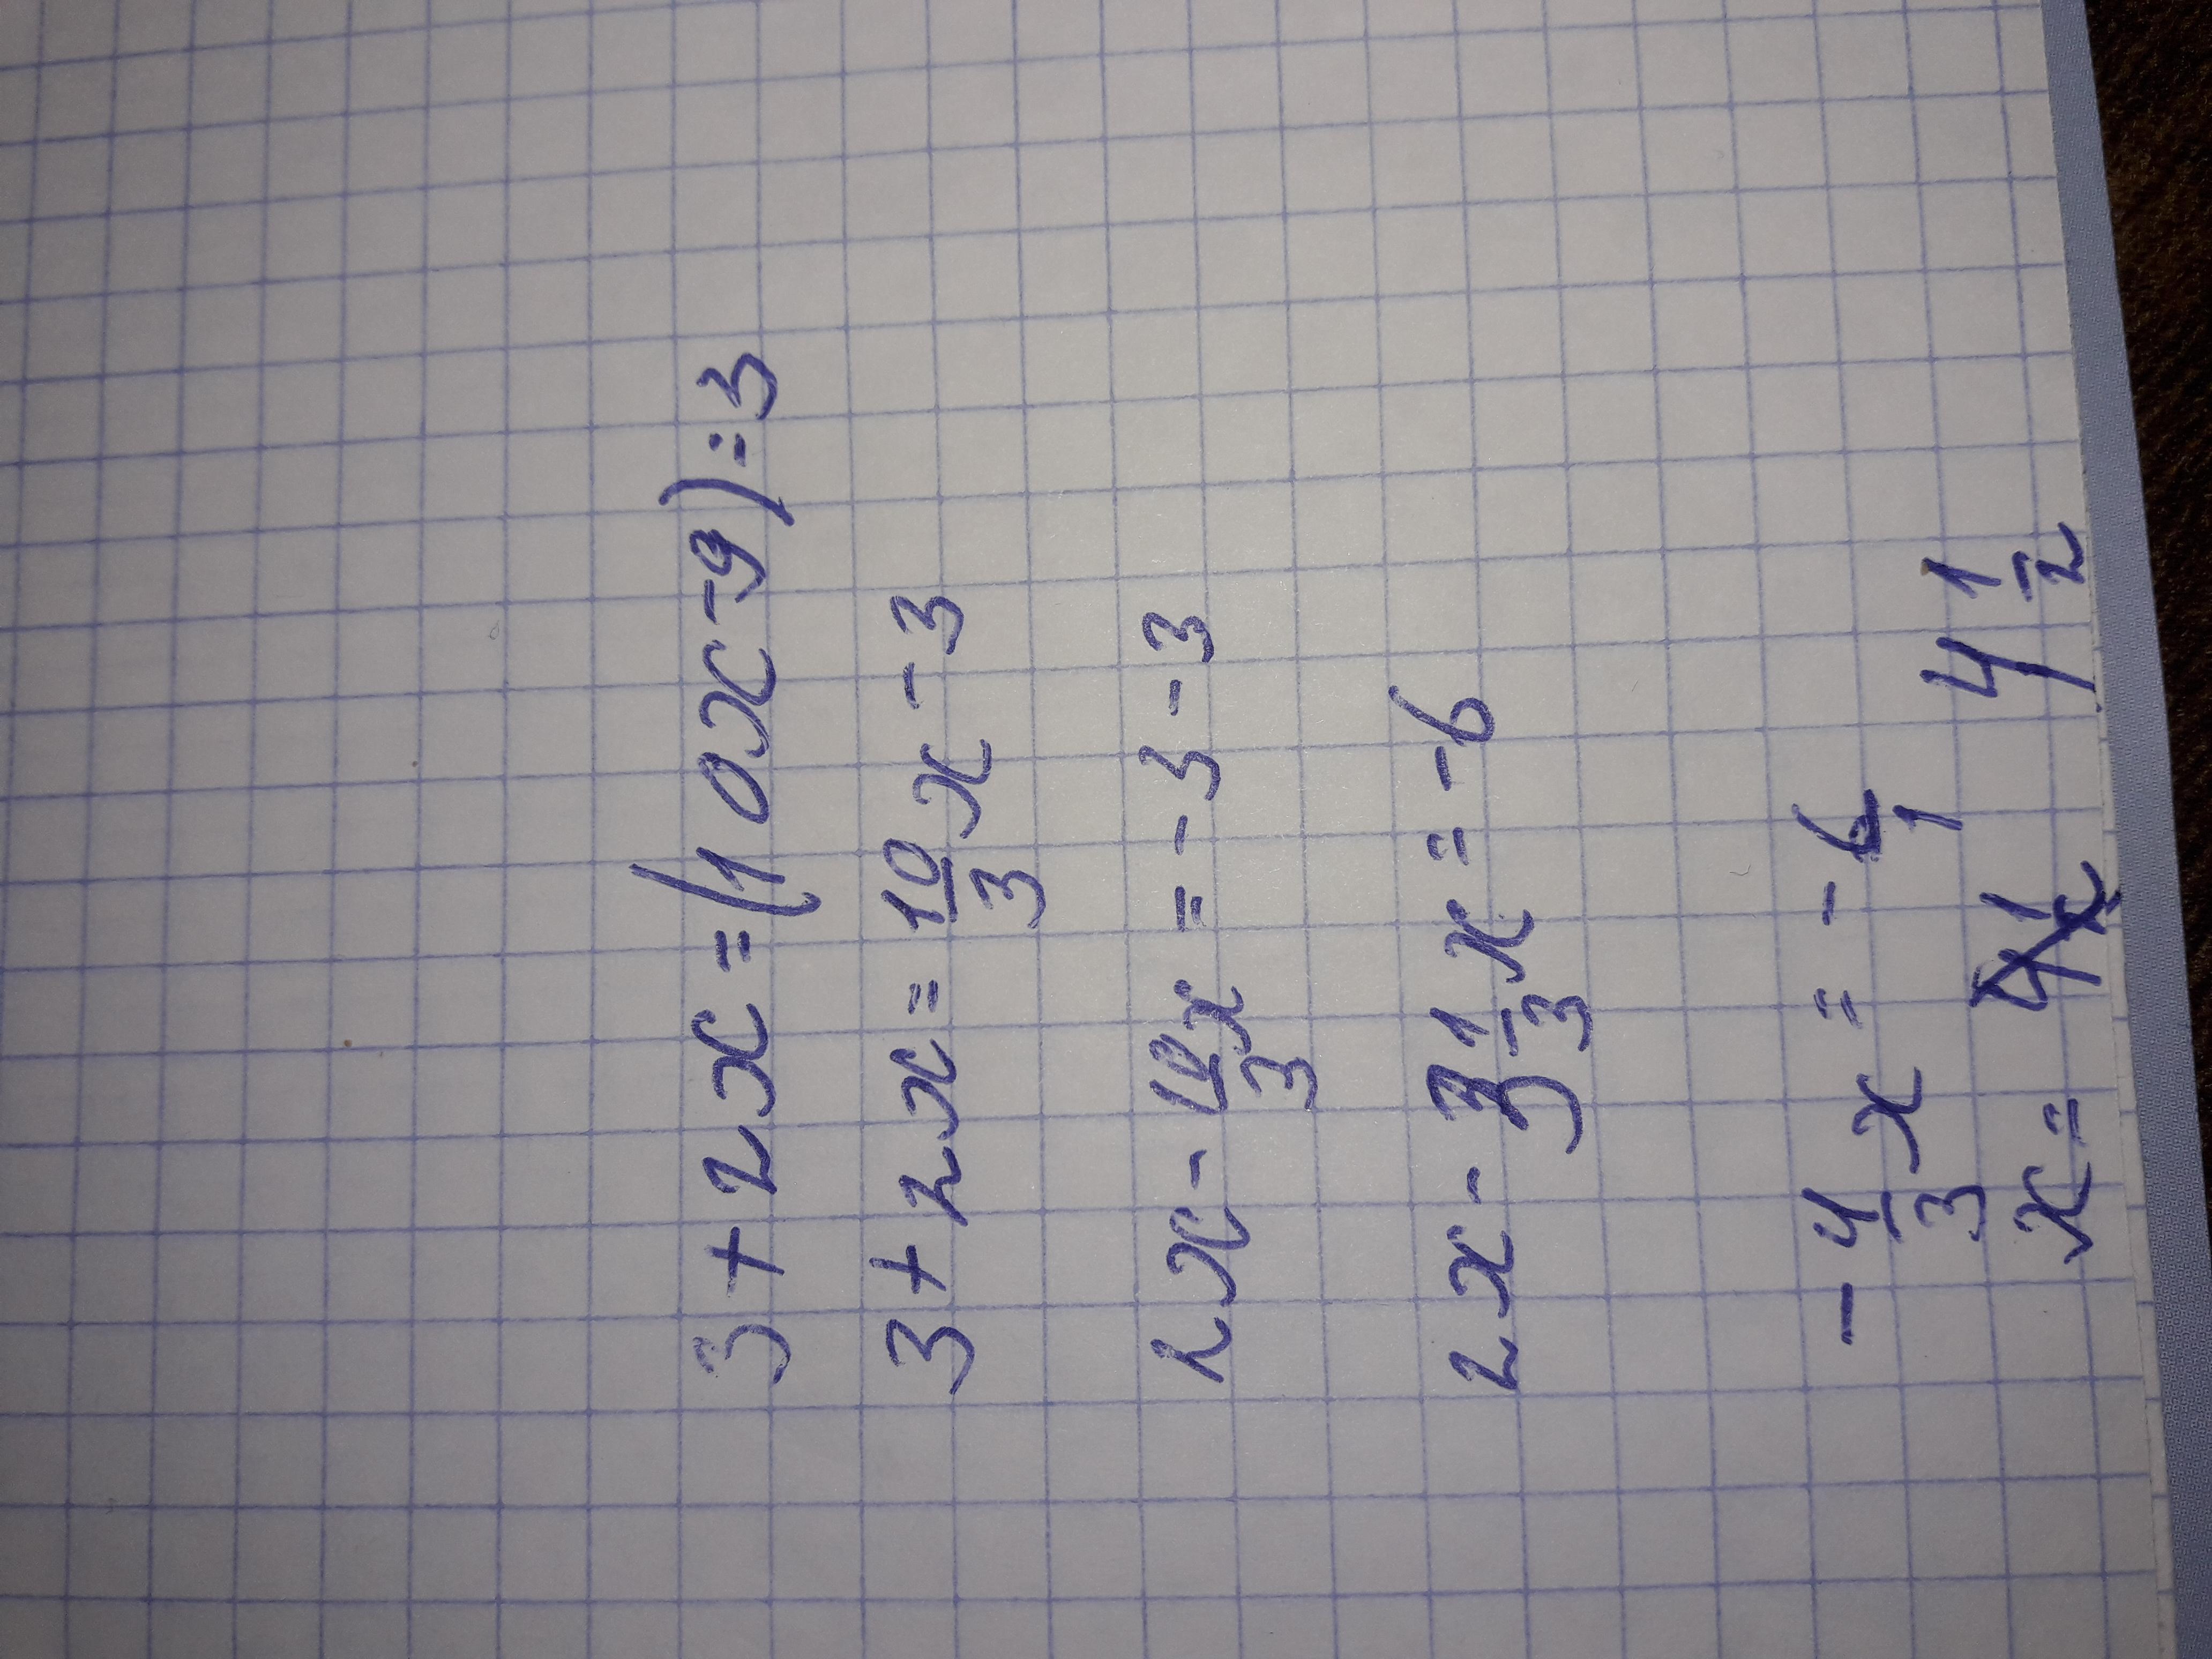 3+2x=(10x-9):3
3+2x=10/3x-3
2x-10/3x=-3-3
2x-3 1/3x=-6
-4/3x=-6/1
x= 4 1/2